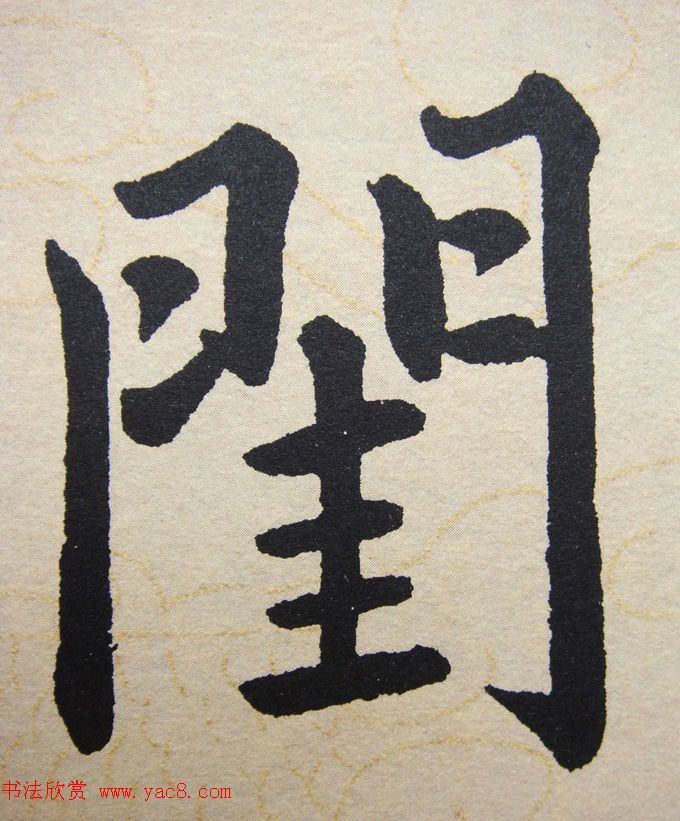 閨
书法欣赏 www.yac8.com